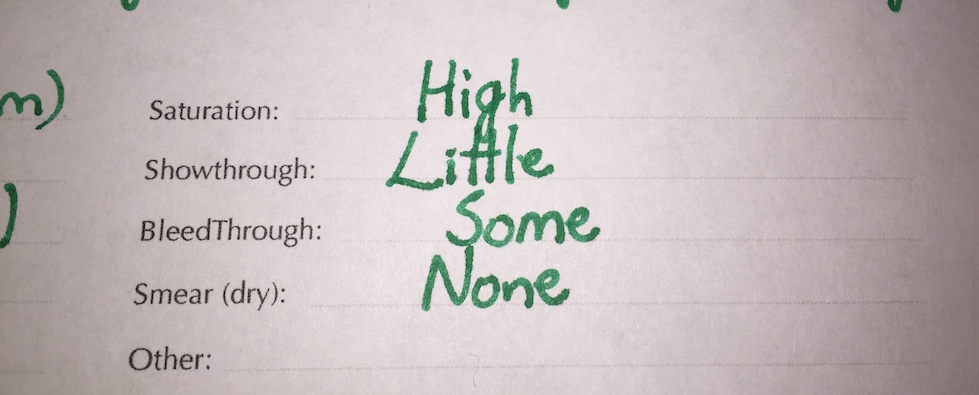 m) Saturation: High
Showthrough: Little
) BleedThrough: Some
Smear (dry): None
Other: